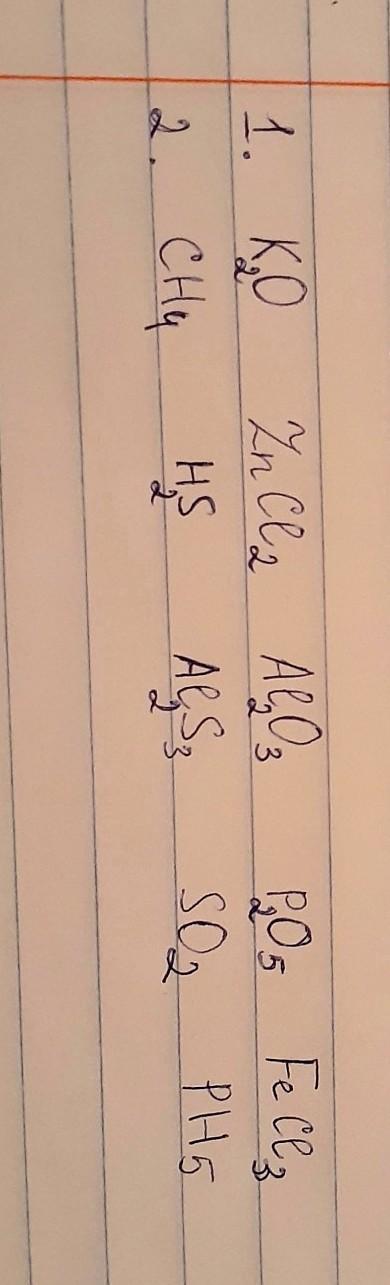 1. K₂O ZnCl₂ Al₂O₃ P₂O₅ FeCl₃
2. CH₄ H₂S Al₂S₃ SO₂ PH₅